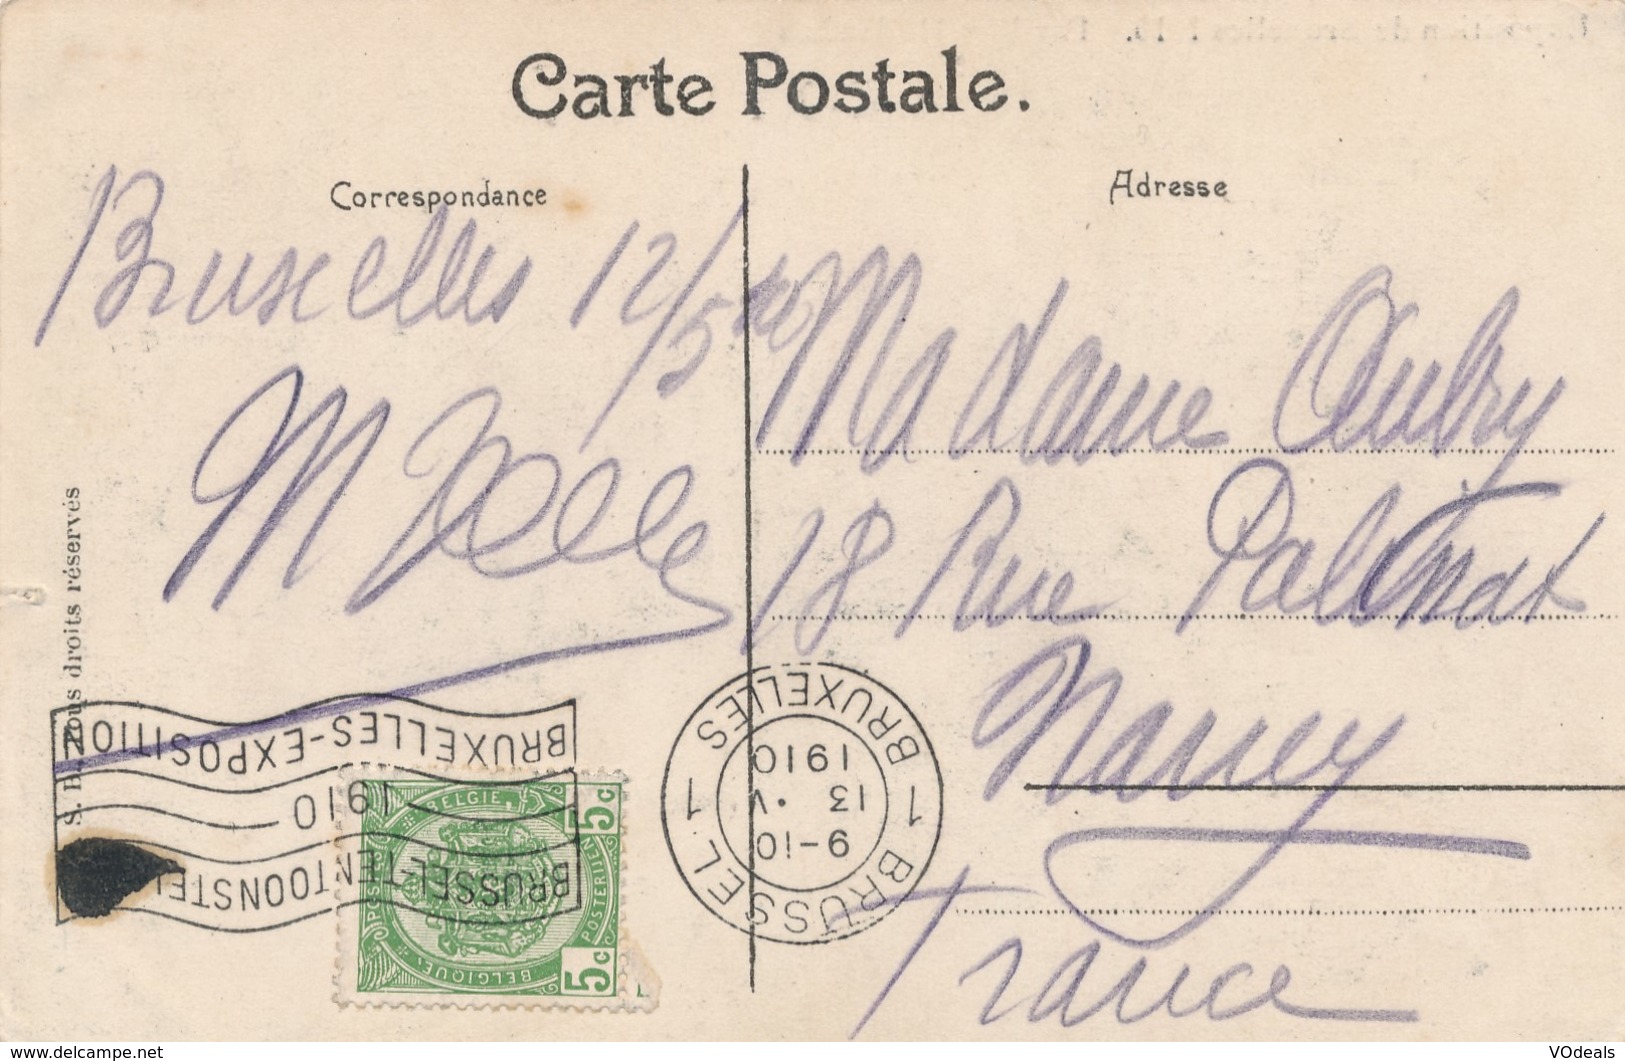 Carte Postale.
Correspondance
Adresse
Bruxelles 12/5
Madame Aubry
18 Rue Palissot
Nancy
France
S. B. Tous droits réservés
BRUXELLES-EXPOSITION
1910
BRUSSEL-TENTOONSTEL
1 BRUXELLES 1 BRUSSEL
9-10
13 . V
1910
BELGIE.
BELGIQUE.
POSTERIJEN
5c
5c
VOdeals
www.delcampe.net